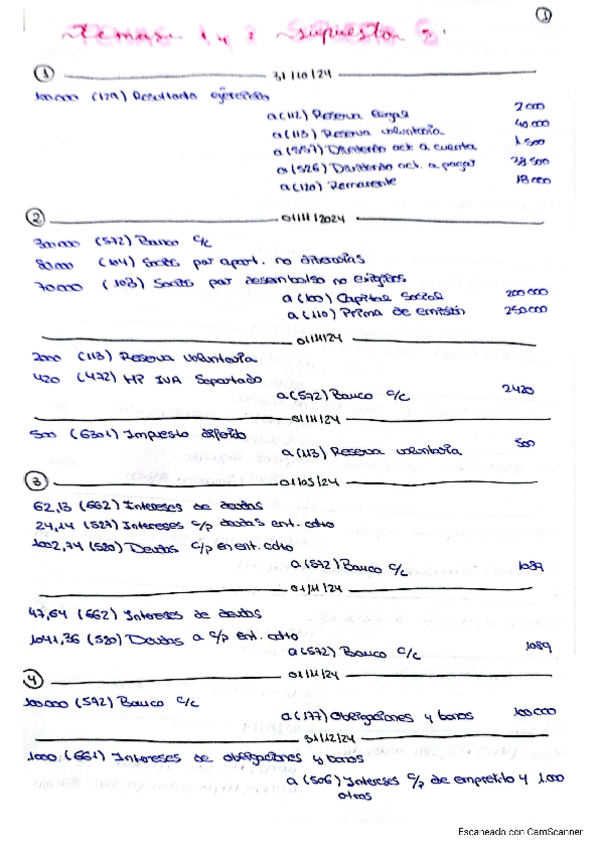 1
Temas 1 y 2 supuesto 5.
1 31/10/24
100.000 (129) Resultado ejercicio
a (112) Reserva Legal 2000
a (113) Reserva voluntaria 40.000
a (557) Dividendo act. a cuenta 1.500
a (526) Dividendo act. a pagar 38.500
a (120) Remanente 18.000
2 01/11/2024
300.000 (572) Banco c/c
80.000 (104) Socios por aport. no dinerarias
70.000 (103) Socios por desembolso no exigidos
a (100) Capital Social 200.000
a (110) Prima de emisión 250.000
01/11/24
2000 (113) Reserva voluntaria
420 (472) HP IVA Soportado
a (572) Banco c/c 2420
01/11/24
500 (6301) Impuesto diferido
a (113) Reserva voluntaria 500
3 01/05/24
62,13 (662) Intereses de deudas
24,14 (527) Intereses c/p deudas ent. cdto
1002,74 (520) Deudas c/p en ent. cdto
a (572) Banco c/c 1089
01/11/24
47,64 (662) Intereses de deudas
1041,36 (520) Deudas a c/p ent. cdto
a (572) Banco c/c 1089
4 01/11/24
100.000 (572) Banco c/c
a (177) Obligaciones y bonos 100.000
31/12/24
1000 (661) Intereses de obligaciones y bonos
a (506) Intereses c/p de empretito y 1.000
otros
Escaneado con CamScanner